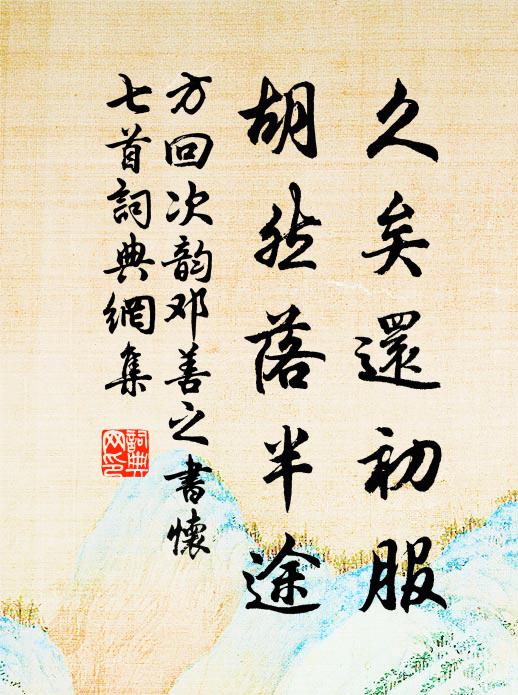 久矣還初服
胡然落半途
方回次韵邓善之書懷
七首詞典網集
詞典
网印